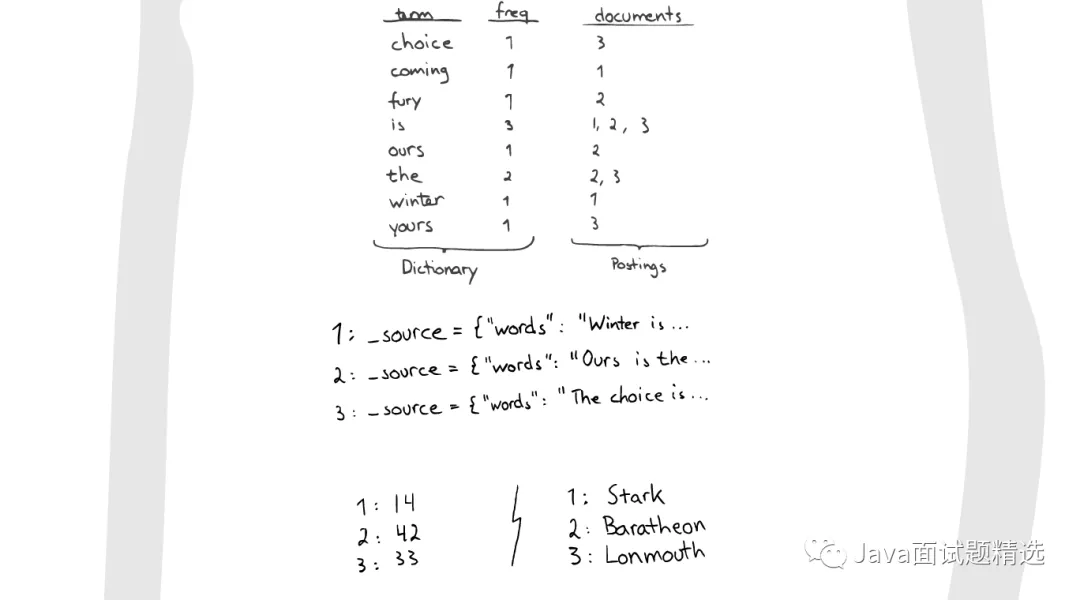 term freq documents
choice 1 3
coming 1 1
fury 1 2
is 3 1, 2, 3
ours 1 2
the 2 2, 3
winter 1 1
yours 1 3
Dictionary Postings
1: _source = {"words": "Winter is ...
2: _source = {"words": "Ours is the ...
3: _source = {"words": "The choice is ...
1: 14 1: Stark
2: 42 2: Baratheon
3: 33 3: Lonmouth
Java面试题精选